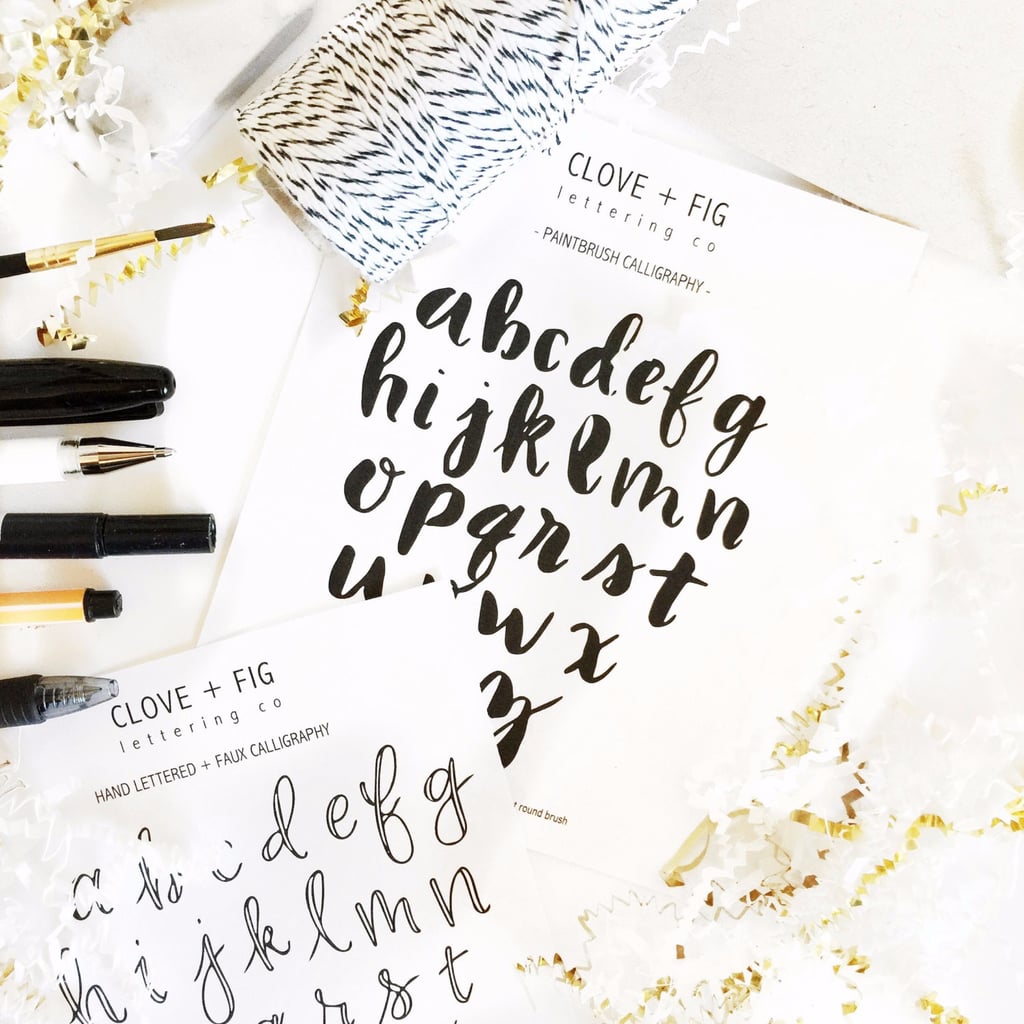 CLOVE + FIG
lettering co
- PAINTBRUSH CALLIGRAPHY -
a b c d e f g
h i j k l m n
o p q r s t
u v w x
z
t round brush
CLOVE + FIG
lettering co
HAND LETTERED + FAUX CALLIGRAPHY
a b c d e f g
h i j k l m n
r s t